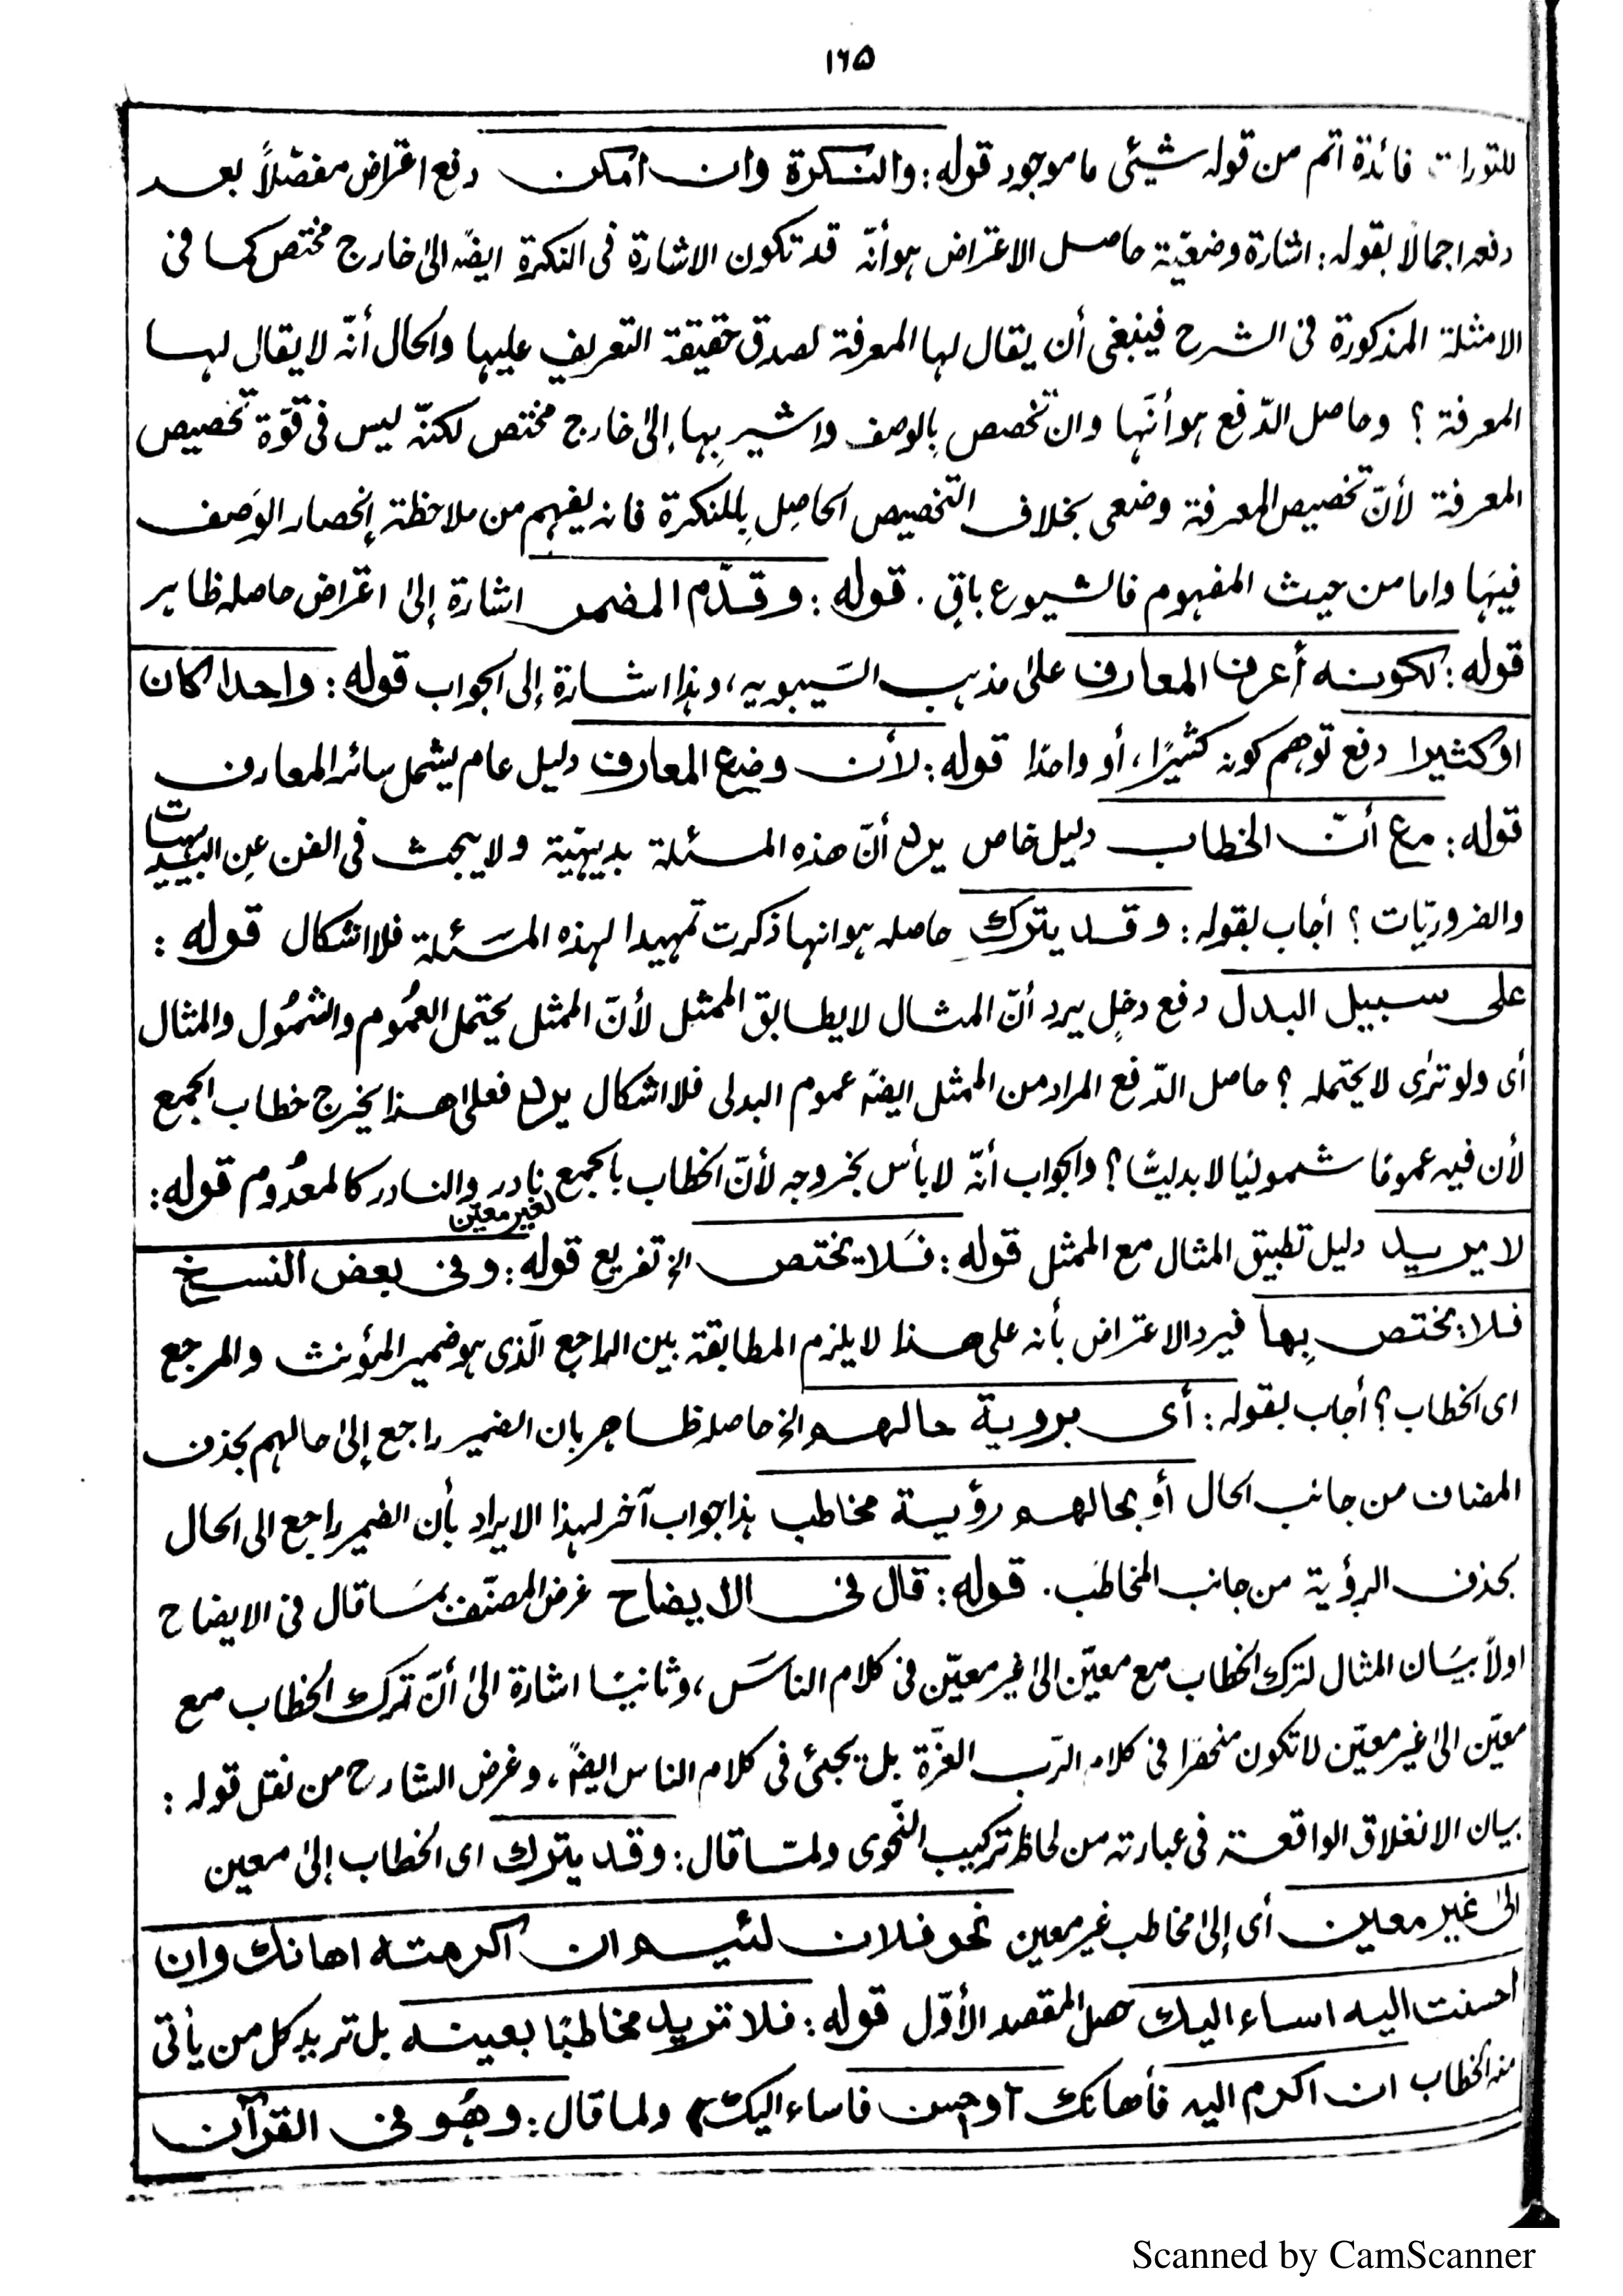 ١٦٥
للتورات فائدة اتم من قوله شيئى ما موجود قوله: والنكرة وان امكن دفع اعتراض مفصّلاً بعد
دفعه اجمالا بقوله: اشارة وضعيّة حاصل الاعتراض هو أنّه قد تكون الاشارة فى النكرة ايضًا الىٰ خارج مختص كما فى
الامثلة المذكورة فى الشرح فينبغى أن يقال لها المعرفة لصدق حقيقة التعريف عليها والحال أنّه لا يقال لها
المعرفة؟ وحاصل الدّفع هو أنّها وان تخصص بِالوصف واشير بِها إلىٰ خارج مختص لكنّه ليس فى قوّة تخصيص
المعرفة لأنّ تخصيص المعرفة وضعى بخلاف التخصيص الحاصِل لِلنكرة فانه يفهم من ملاحظة إنحصار الوَصف
فيهَا واما من حيث المفهوم فالشيوع باقٍ. قوله: وقدّم المضمر اشارة إلىٰ اعتراض حاصله ظاهر
قوله: لكونه أعرف المعارف علىٰ مذهب السَيبويه، وهذا اشارة إلى الجواب قوله: واحدا كان
او كثيرا دفع توهم كونه كثيرًا، أو واحدًا قوله: لأن وضع المعارف دليل عام يشمل سائر المعارف
قوله: مع أنّ الخطاب دليل خاص يرد أنّ هذه المسئلة بديهيّة ولا يبحث فى الفن عن البديهيات
والضروريّات؟ أجاب بقوله: وقد يترك حاصله هو انها ذكرت تمهيدا لهذه المسَئلة فلا اشكال قوله:
على سبيل البدل دفع دخلٍ يرد أنّ المثال لا يطابق الممثل لأنّ الممثل يحتمل العمُوم والشمُول والمثال
أى ولو ترىٰ لا يحتمله؟ حاصل الدّفع المراد من الممثل ايضًا عموم البدلى فلا اشكال يرد فعلىٰ هذا يخرج خطاب الجمع
لأن فيه عمومًا شموليًا لا بدليًا؟ والجواب أنّه لا بأس بخروجه لأنّ الخطاب بالجمع لغير معيّن نادر والنادر كالمعدُوم قوله:
لا يريد دليل تطبيق المثال مع الممثل قوله: فلا يختص الخ تفريع قوله: وفى بعض النسخ
فلا يختص بِها فيرد الاعتراض بأنه على هذا لا يلزم المطابقة بين الراجع الّذى هو ضمير المؤنث والمرجع
اى الخطاب؟ أجاب بقوله: أى بروية حالهم الخ حاصله ظاهر بان الضمير راجع إلىٰ حالهم بحذف
المضاف من جانب الحال أو بحالهم رؤية مخاطب هذا جواب آخر لهذا الايراد بأن الضمير راجع الى الحال
بحذف الرؤية من جانب المخاطَب. قوله: قال فى الايضاح غرض المصنّف بما قال فى الايضاح
اولاً بيَان المثال لترك الخطاب مع معيّن الىٰ غير معيّن فى كلام الناسَ، وثانيًا اشارة الىٰ أنّ ترك الخطاب مع
معيّن الىٰ غير معيّن لا تكون منحصرًا فى كلام الرّب العزّة بل يجئى فى كلام الناس ايضًا، وغرض الشارح من نقل قوله:
بيان الانغلاق الواقعة فى عبارته من لحاظ تركيب النّحوى ولمّا قال: وقد يترك اى الخطاب إلىٰ معين
الىٰ غير معين أى إلىٰ مخاطب غير معين نحو فلان لئيم ان اكرمته اهانك وان
احسنت اليه اساء اليك هل المقصد الأوّل قوله: فلا تريد مخاطبًا بعينه بل تريد كل من يأتى
منه الخطاب ان اكرم اليه فأهانك أو احسن فاساء اليك) ولما قال: وهُو فى القرآن
Scanned by CamScanner